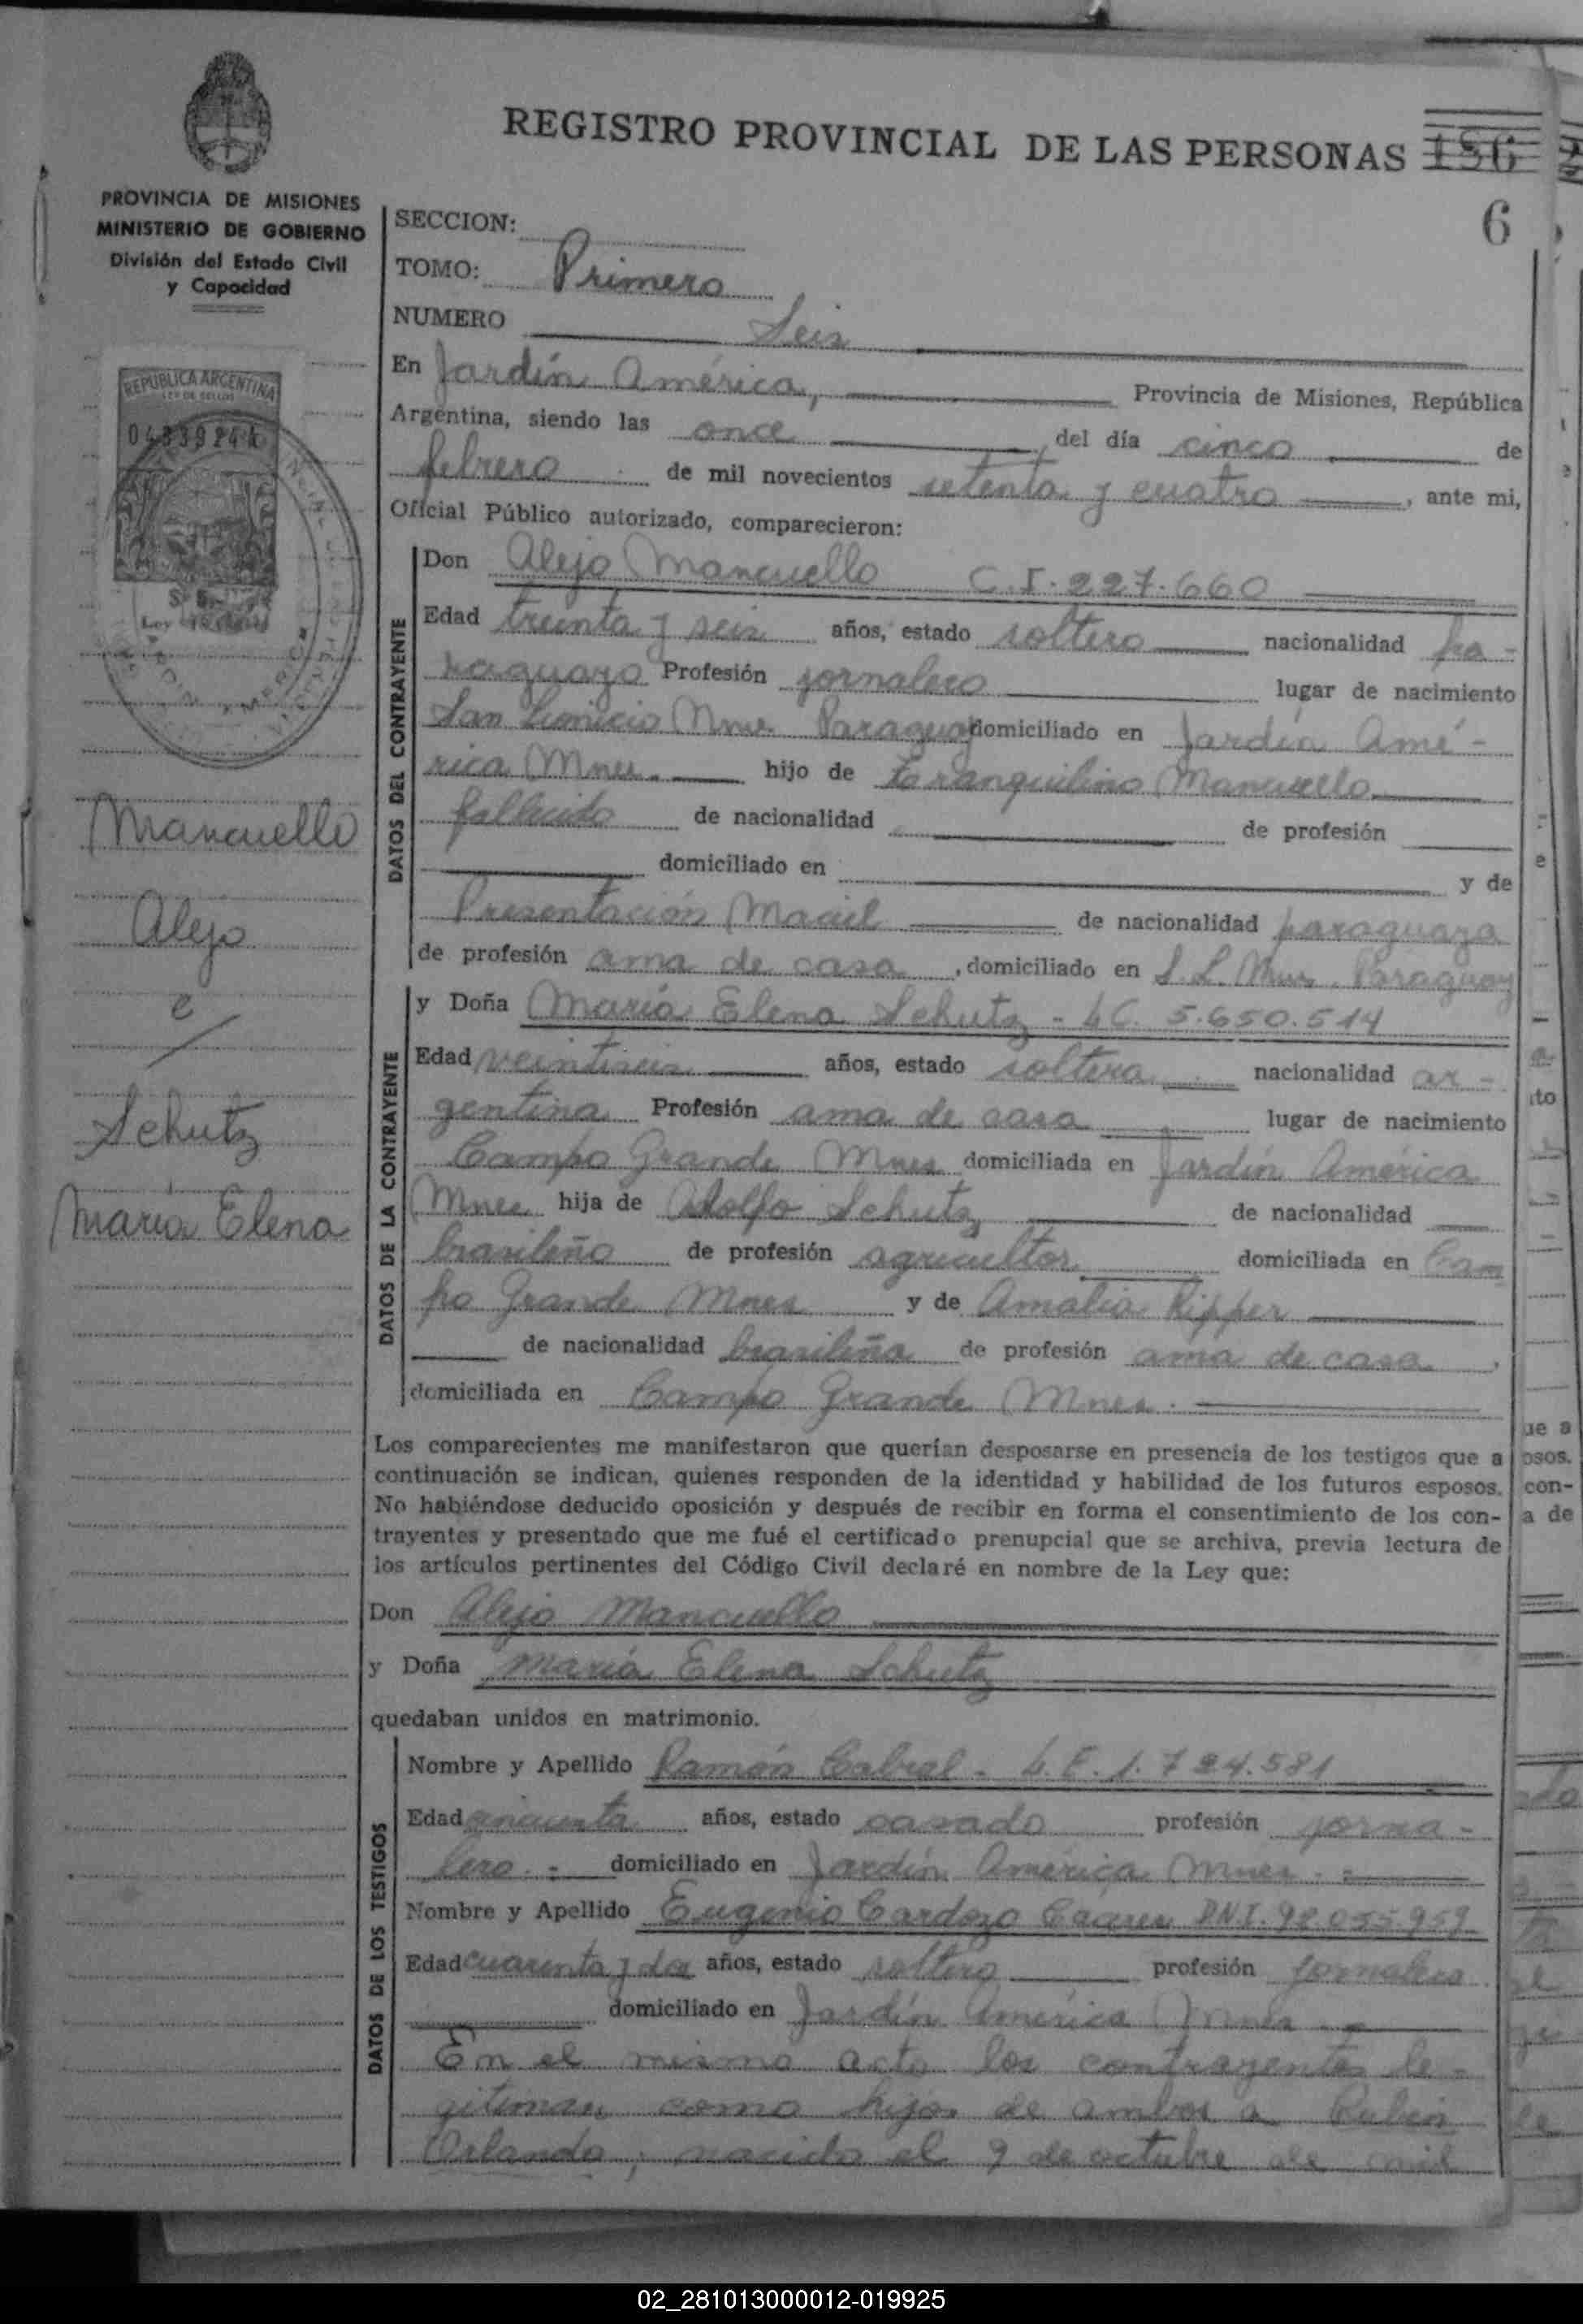 REGISTRO PROVINCIAL DE LAS PERSONAS 156
6
PROVINCIA DE MISIONES
MINISTERIO DE GOBIERNO
División del Estado Civil
y Capacidad
REPUBLICA ARGENTINA
LEY DE SELLOS
Mancuello
Alejo
e/
Schutz
María Elena
SECCION:
TOMO: Primero
NUMERO Seis
En Jardín América, Provincia de Misiones, República
Argentina, siendo las once del día cinco de
febrero de mil novecientos setenta y cuatro, ante mi,
Oficial Público autorizado, comparecieron:
DATOS DEL CONTRAYENTE
Don Alejo Mancuello C.I. 227.660
Edad treinta y seis años, estado soltero nacionalidad pa-
raguayo Profesión jornalero lugar de nacimiento
San Mnes. Paraguay domiciliado en Jardín Amé-
rica Mnes. hijo de Tranquilino Mancuello
fallecido de nacionalidad de profesión
domiciliado en y de
Presentación Maciel de nacionalidad paraguaya
de profesión ama de casa, domiciliado en S.L. Mnes. Paraguay
DATOS DE LA CONTRAYENTE
y Doña María Elena Schutz - L.C. 5.650.514
Edad veintiseis años, estado soltera nacionalidad ar-
gentina Profesión ama de casa lugar de nacimiento
Campo Grande Mnes domiciliada en Jardín América
Mnes hija de Adolfo Schutz de nacionalidad
brasileño de profesión agricultor domiciliada en Cam
po Grande Mnes y de Amalia Ripper
de nacionalidad brasileña de profesión ama de casa,
domiciliada en Campo Grande Mnes.
Los comparecientes me manifestaron que querían desposarse en presencia de los testigos que a
continuación se indican, quienes responden de la identidad y habilidad de los futuros esposos.
No habiéndose deducido oposición y después de recibir en forma el consentimiento de los con-
trayentes y presentado que me fué el certificado prenupcial que se archiva, previa lectura de
los artículos pertinentes del Código Civil declaré en nombre de la Ley que:
Don Alejo Mancuello
y Doña María Elena Schutz
quedaban unidos en matrimonio.
DATOS DE LOS TESTIGOS
Nombre y Apellido Ramón Cabral - L.E. 1.724.581
Edad cincuenta años, estado casado profesión jorna-
lero.- domiciliado en Jardín América Mnes.-
Nombre y Apellido Eugenio Cardozo Caceres DNI. 92.055.959
Edad cuarenta y dos años, estado soltero profesión jornalero
domiciliado en Jardín América Mnes.-
En el mismo acto los contrayentes le-
gitiman como hijos de ambos a Rubén
Orlando, nacido el 9 de octubre de mil
02_281013000012-019925